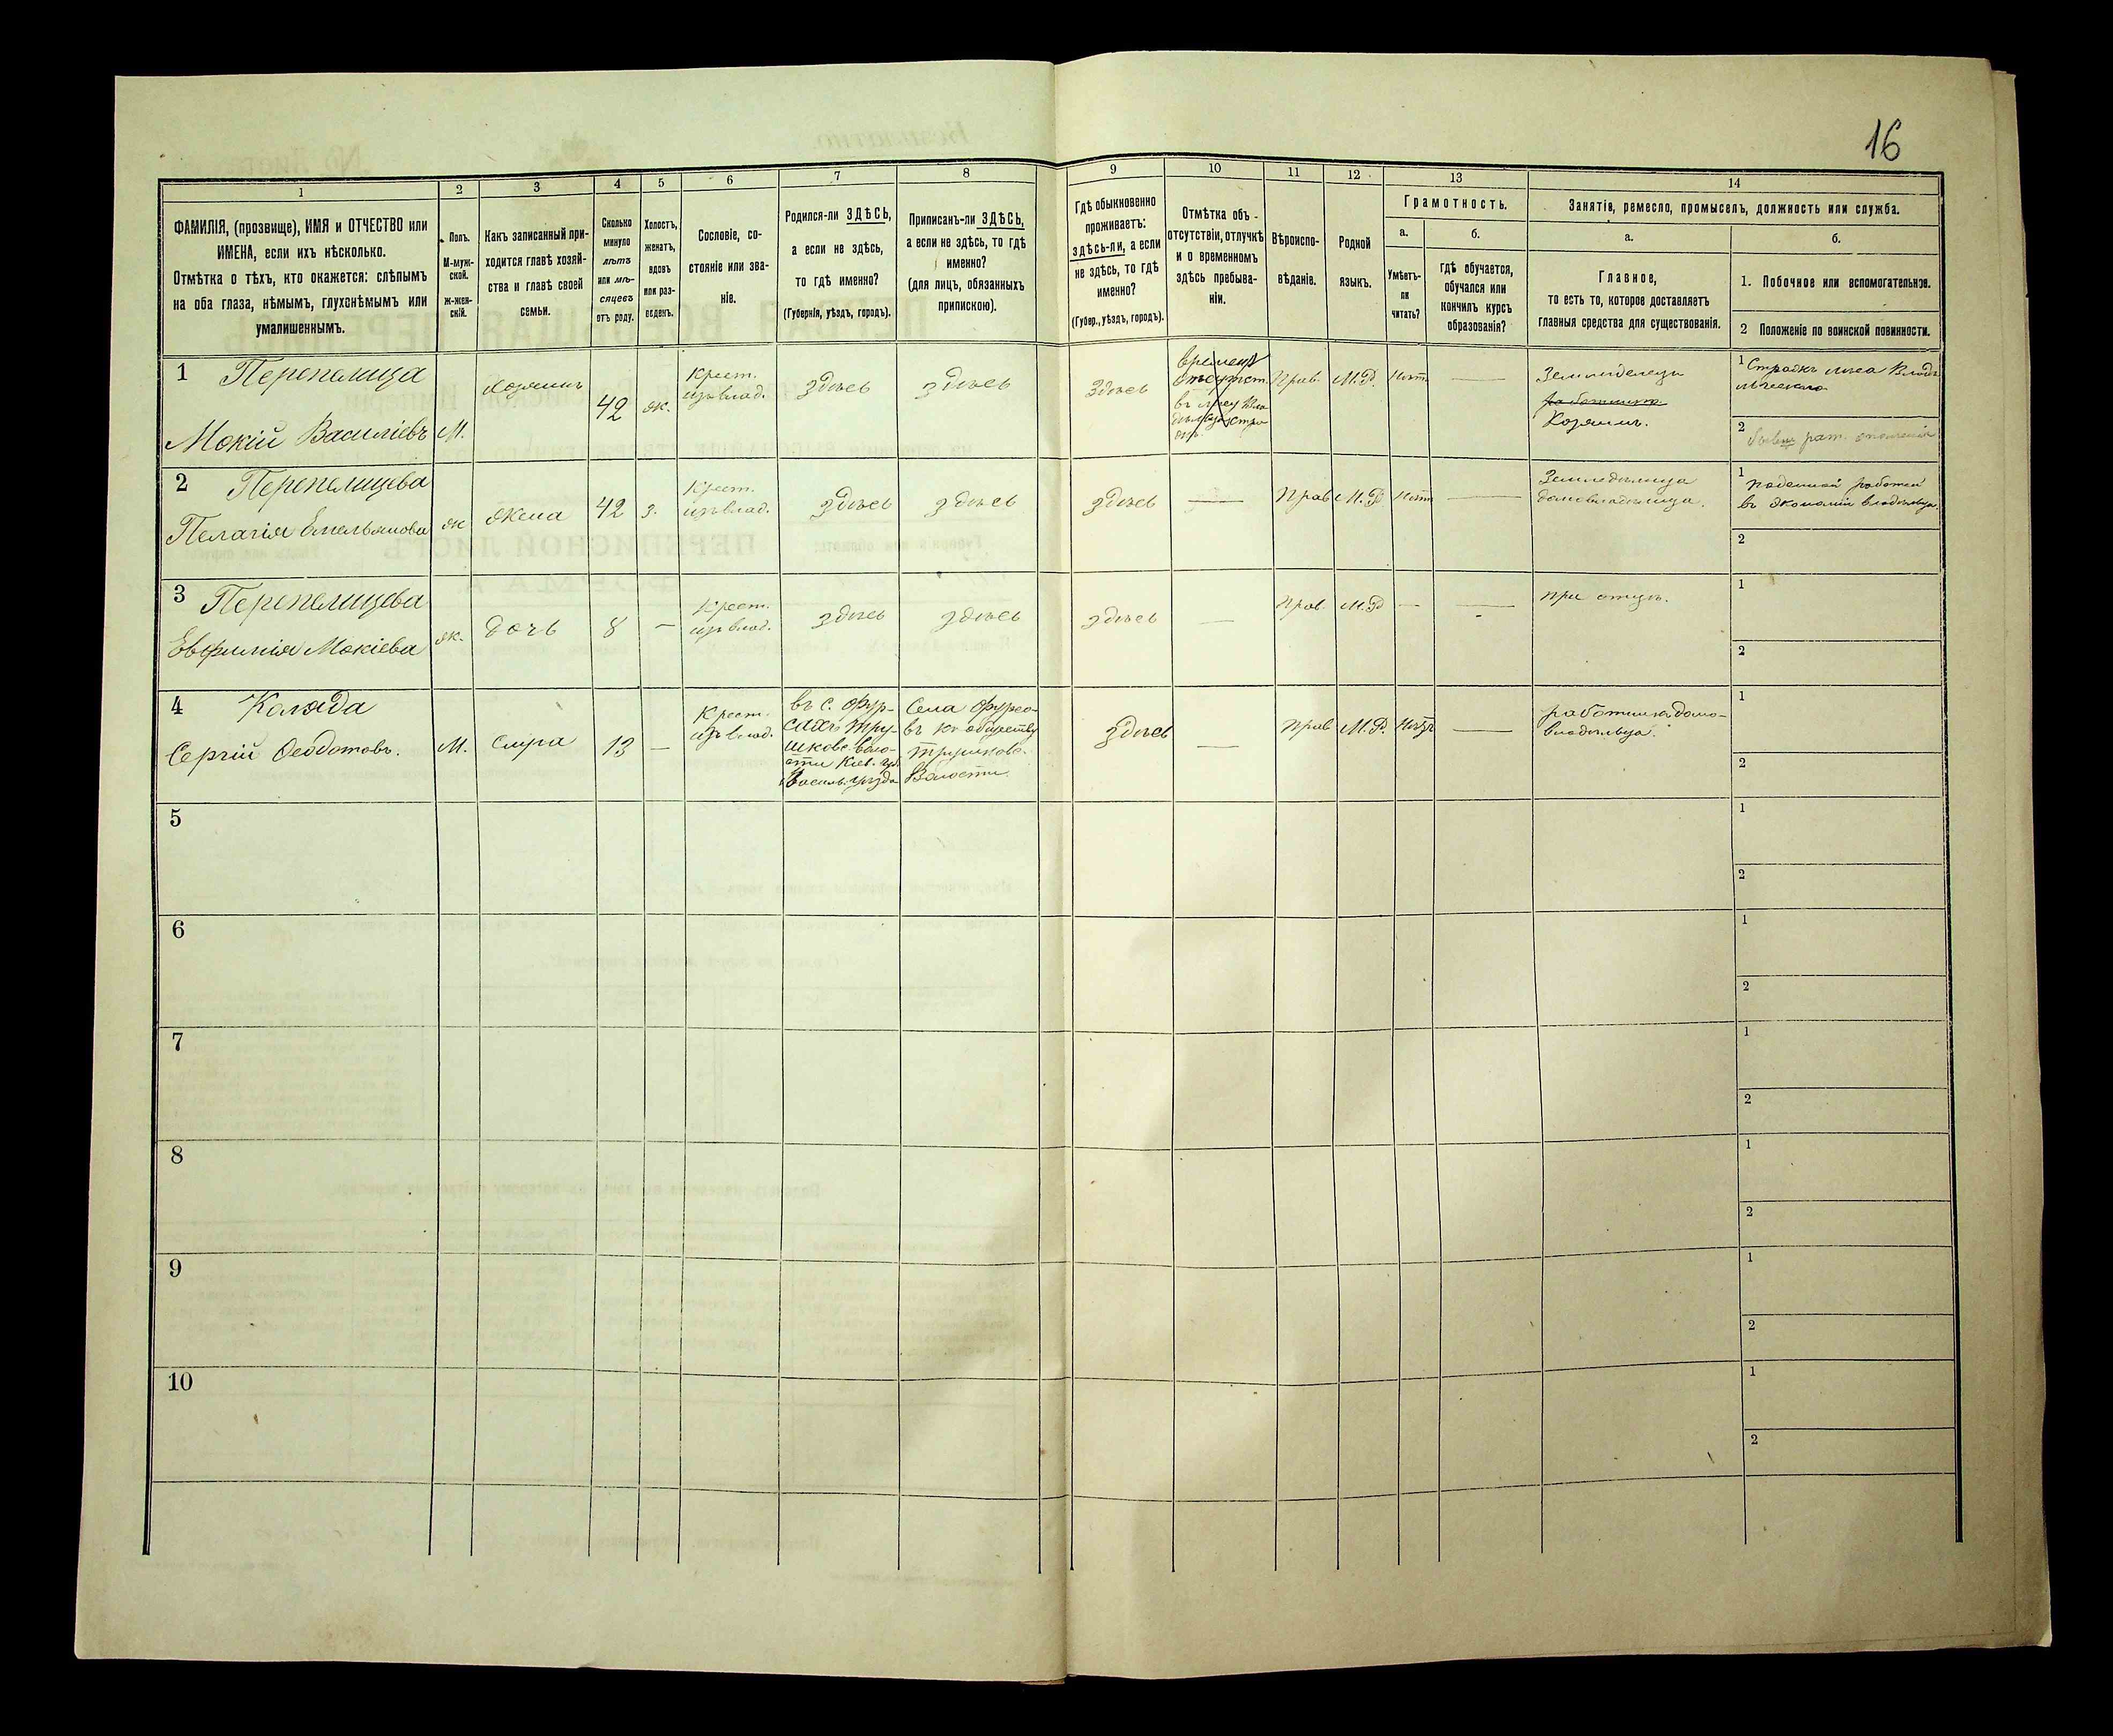 16
1
2
3
4
5
6
7
8
9
10
11
12
13
14
ФАМИЛІЯ, (прозвище), ИМЯ и ОТЧЕСТВО или
ИМЕНА, если ихъ нѣсколько.
Отмѣтка о тѣхъ, кто окажется: слѣпымъ
на оба глаза, нѣмымъ, глухонѣмымъ или
умалишеннымъ.
Полъ.
М-муж-
ской.
Ж-жен-
скій.
Какъ записанный при-
ходится главѣ хозяй-
ства и главѣ своей
семьи.
Сколько
минуло
лѣтъ
или мѣ-
сяцевъ
отъ роду.
Холостъ,
женатъ,
вдовъ
или раз-
веденъ.
Сословіе, со-
стояніе или зва-
ніе.
Родился-ли ЗДѢСЬ,
а если не здѣсь,
то гдѣ именно?
(Губернія, уѣздъ, городъ).
Приписанъ-ли ЗДѢСЬ,
а если не здѣсь, то гдѣ
именно?
(для лицъ, обязанныхъ
припискою).
Гдѣ обыкновенно
проживаетъ:
здѣсь-ли, а если
не здѣсь, то гдѣ
именно?
(Губер., уѣздъ, городъ).
Отмѣтка объ-
отсутствіи, отлучкѣ
и о временномъ
здѣсь пребыва-
ніи.
Вѣроиспо-
вѣданіе.
Родной
языкъ.
Грамотность.
а.
Умѣетъ-
ли
читать?
б.
Гдѣ обучается,
обучался или
кончилъ курсъ
образованія?
Занятія, ремесло, промыселъ, должность или служба.
а.
Главное,
то есть то, которое доставляетъ
главныя средства для существованія.
б.
1. Побочное или вспомогательное.
2 Положеніе по воинской повинности.
1 Перепелица
Мокій Василіевъ
М.
Хозяинъ
42
ж.
Крест.
изъ влад.
здѣсь
здѣсь
Здѣсь
Времен
Отсутст.
Прав.
М.Р.
Нѣтъ
—
Земледелецъ
работникъ
Хозяинъ.
1
лѣса
2
рат. ополченія
2 Перепелицева
Пелагія Емельянова
ж
Жена
42
з.
Крест.
изъ влад.
здѣсь
здѣсь
здѣсь
—
Прав
М.Р
Нѣтъ
—
Земледѣлица
домовладѣлица.
1 поденной работой
въ экономіи владѣльца.
2
3 Перепелицева
Евфимія Мокіева
ж.
дочь
8
—
Крест.
изъ влад.
здѣсь
здѣсь
здѣсь
—
Прав.
М.Р
—
—
при отцѣ.
1
2
4 Коляда
Сергій Феодотовъ.
М.
Сира
13
—
Крест.
изъ влад.
въ с. Фур-
сахъ Тру-
шковс. воло-
сти Кіев. губ.
Васильк. уѣзда
Села Фурсо-
въ къ обществу
Трушковс.
Волости.
здѣсь
—
Прав
М.Р.
Нѣтъ
—
работникъ домо-
владѣльца.
1
2
5
1
2
6
1
2
7
1
2
8
1
2
9
1
2
10
1
2